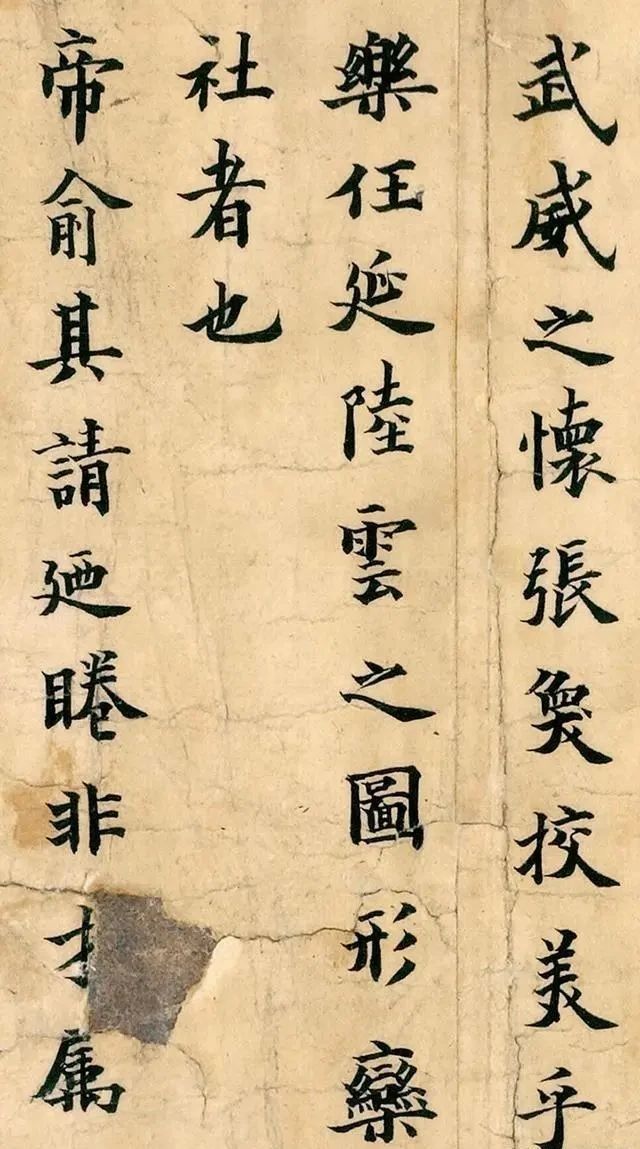 武威之懷張奐校美乎
樂任延陸雲之圖形欒
社者也
帝俞其請廼睠非才属